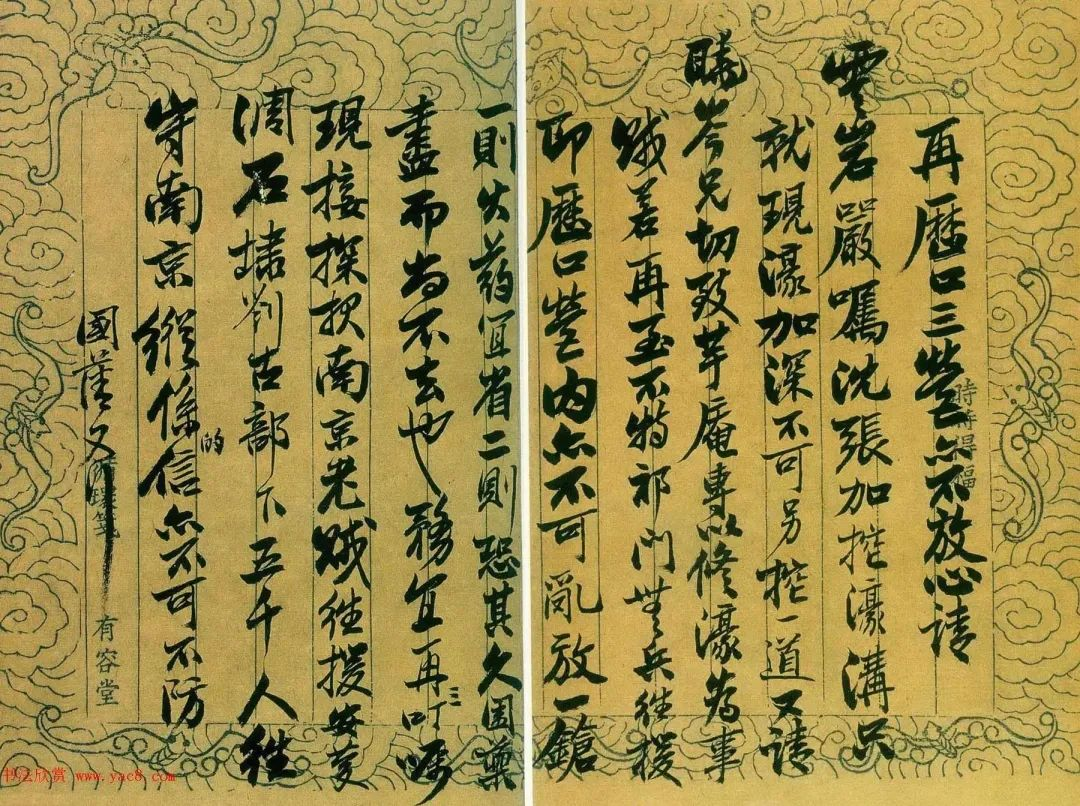 再歷口三營亦不放心請
雲岩嚴囑沈張加挖濠溝只
就現濠加深不可另挖一道又請
曉岑兄切致芋庵專以修濠為事
賊若再至不特祁門無兵往援
即歷口營內亦不可亂放一鎗
一則火藥宜省二則恐其久圍藥
盡而尚不去也務宜再三叮囑
現接探報南京老賊往援安慶
調石埭劉古部下五千人往
守南京縱係的信亦不可不防
國藩又
時時得福
有容堂
书法欣赏 www.yac8.com